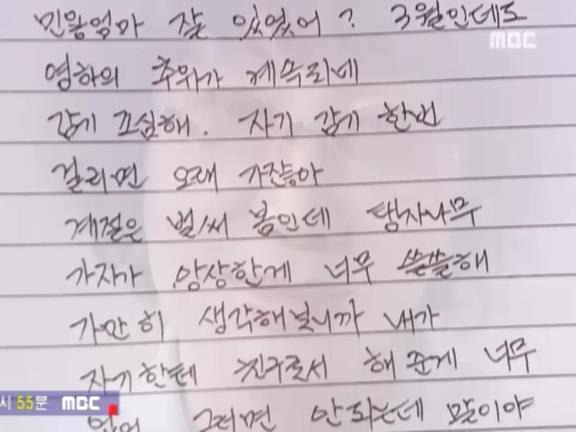 민왕엄마 잘 있었어? 3월인데도
MBC
영하의 추위가 계속되네
감기 조심해. 자기 감기 한번
걸리면 오래 가잖아
계절은 벌써 봄인데 탱자나무
가지가 앙상한게 너무 쓸쓸해
가만히 생각해보니까 내가
자기한테 친구로서 해 준게 너무
시 55분 MBC
없어 그러면 안되는데 말이야